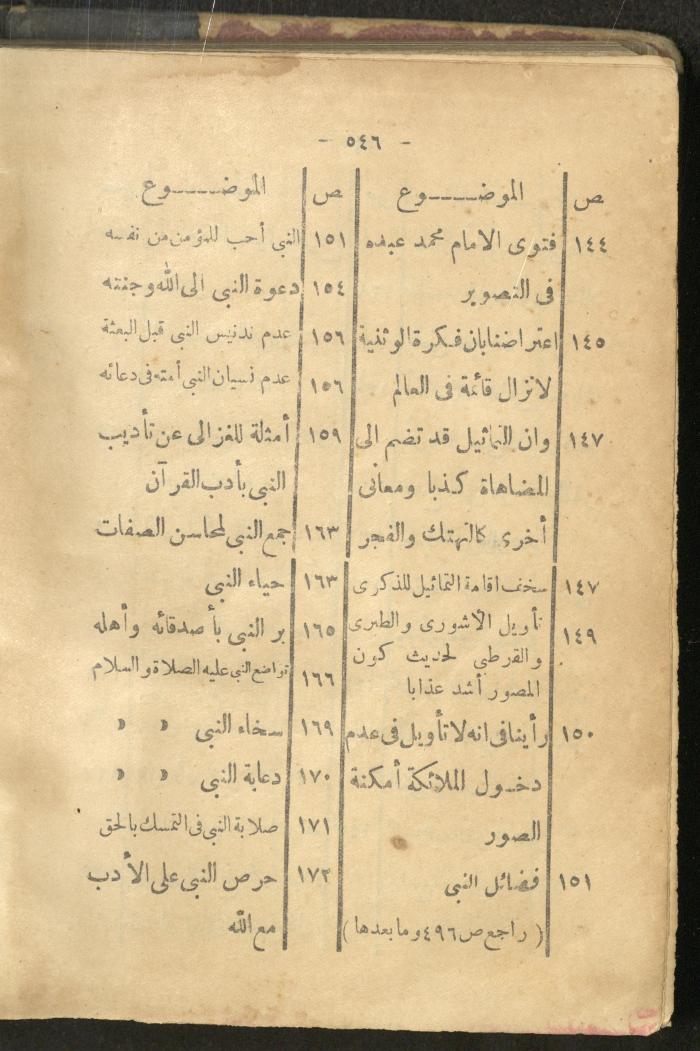 - ٥٤٦ -
ص الموضـــــوع
١٤٤ فتوى الامام محمد عبده
فى التصوير
١٤٥ اعتراضنا بان فكرة الوثنية
لا تزال قائمة فى العالم
١٤٧ وان التماثيل قد تضم الى
المضاهاة كذبا ومعانى
أخرى كالتهتك والفجر
١٤٧ سخف اقامة التماثيل للذكرى
١٤٩ تأويل الأشورى والطبرى
والقرطبى لحديث كون
المصور أشد عذابا
١٥٠ رأينا فى انه لا تأويل فى عدم
دخول الملائكة أمكنة
الصور
١٥١ فضائل النبى
( راجع ص ٤٩٦ وما بعدها )
ص الموضـــــوع
١٥١ النبى أحب للمؤمن من نفسه
١٥٤ دعوة النبى الى الله وجنته
١٥٦ عدم تدنيس النبى قبل البعثة
١٥٦ عدم نسيان النبى أمته فى دعائه
١٥٩ أمثلة للغزالى عن تأديب
النبى بأدب القرآن
١٦٣ جمع النبى لمحاسن الصفات
١٦٣ حياء النبى
١٦٥ بر النبى بأصدقائه وأهله
١٦٦ تواضع النبى عليه الصلاة والسلام
١٦٩ سخاء النبى » »
١٧٠ دعابة النبى » »
١٧١ صلابة النبى فى التمسك بالحق
١٧٢ حرص النبى على الأدب
مع الله